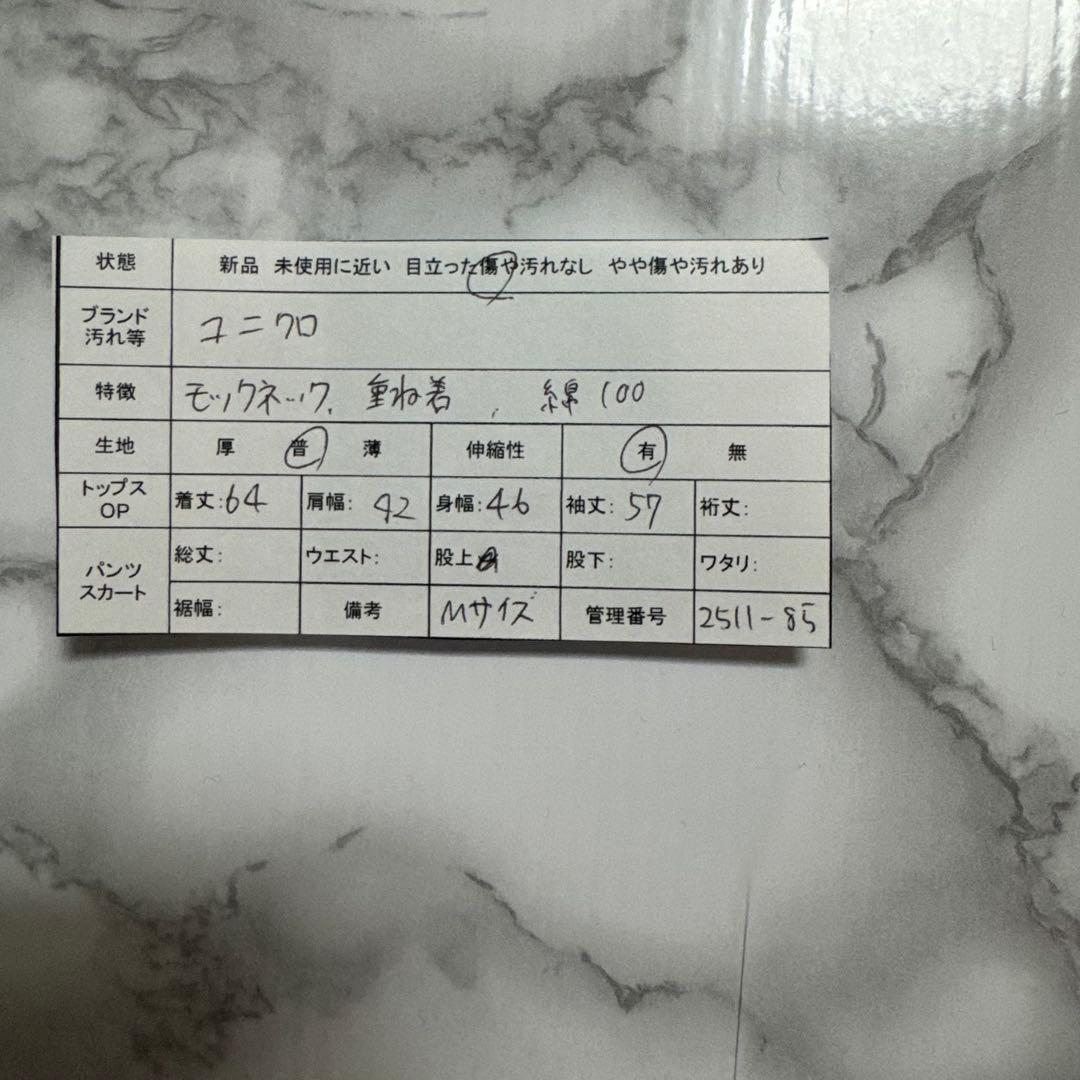 状態 新品 未使用に近い 目立った傷や汚れなし やや傷や汚れあり
ブランド
汚れ等 ユニクロ
特徴 モックネック、重ね着、綿100
生地 厚 普 薄 伸縮性 有 無
トップス
OP 着丈:64 肩幅: 42 身幅:46 袖丈: 57 裄丈:
パンツ
スカート 総丈: ウエスト: 股上 股下: ワタリ:
裾幅: 備考 Mサイズ 管理番号 2511-85